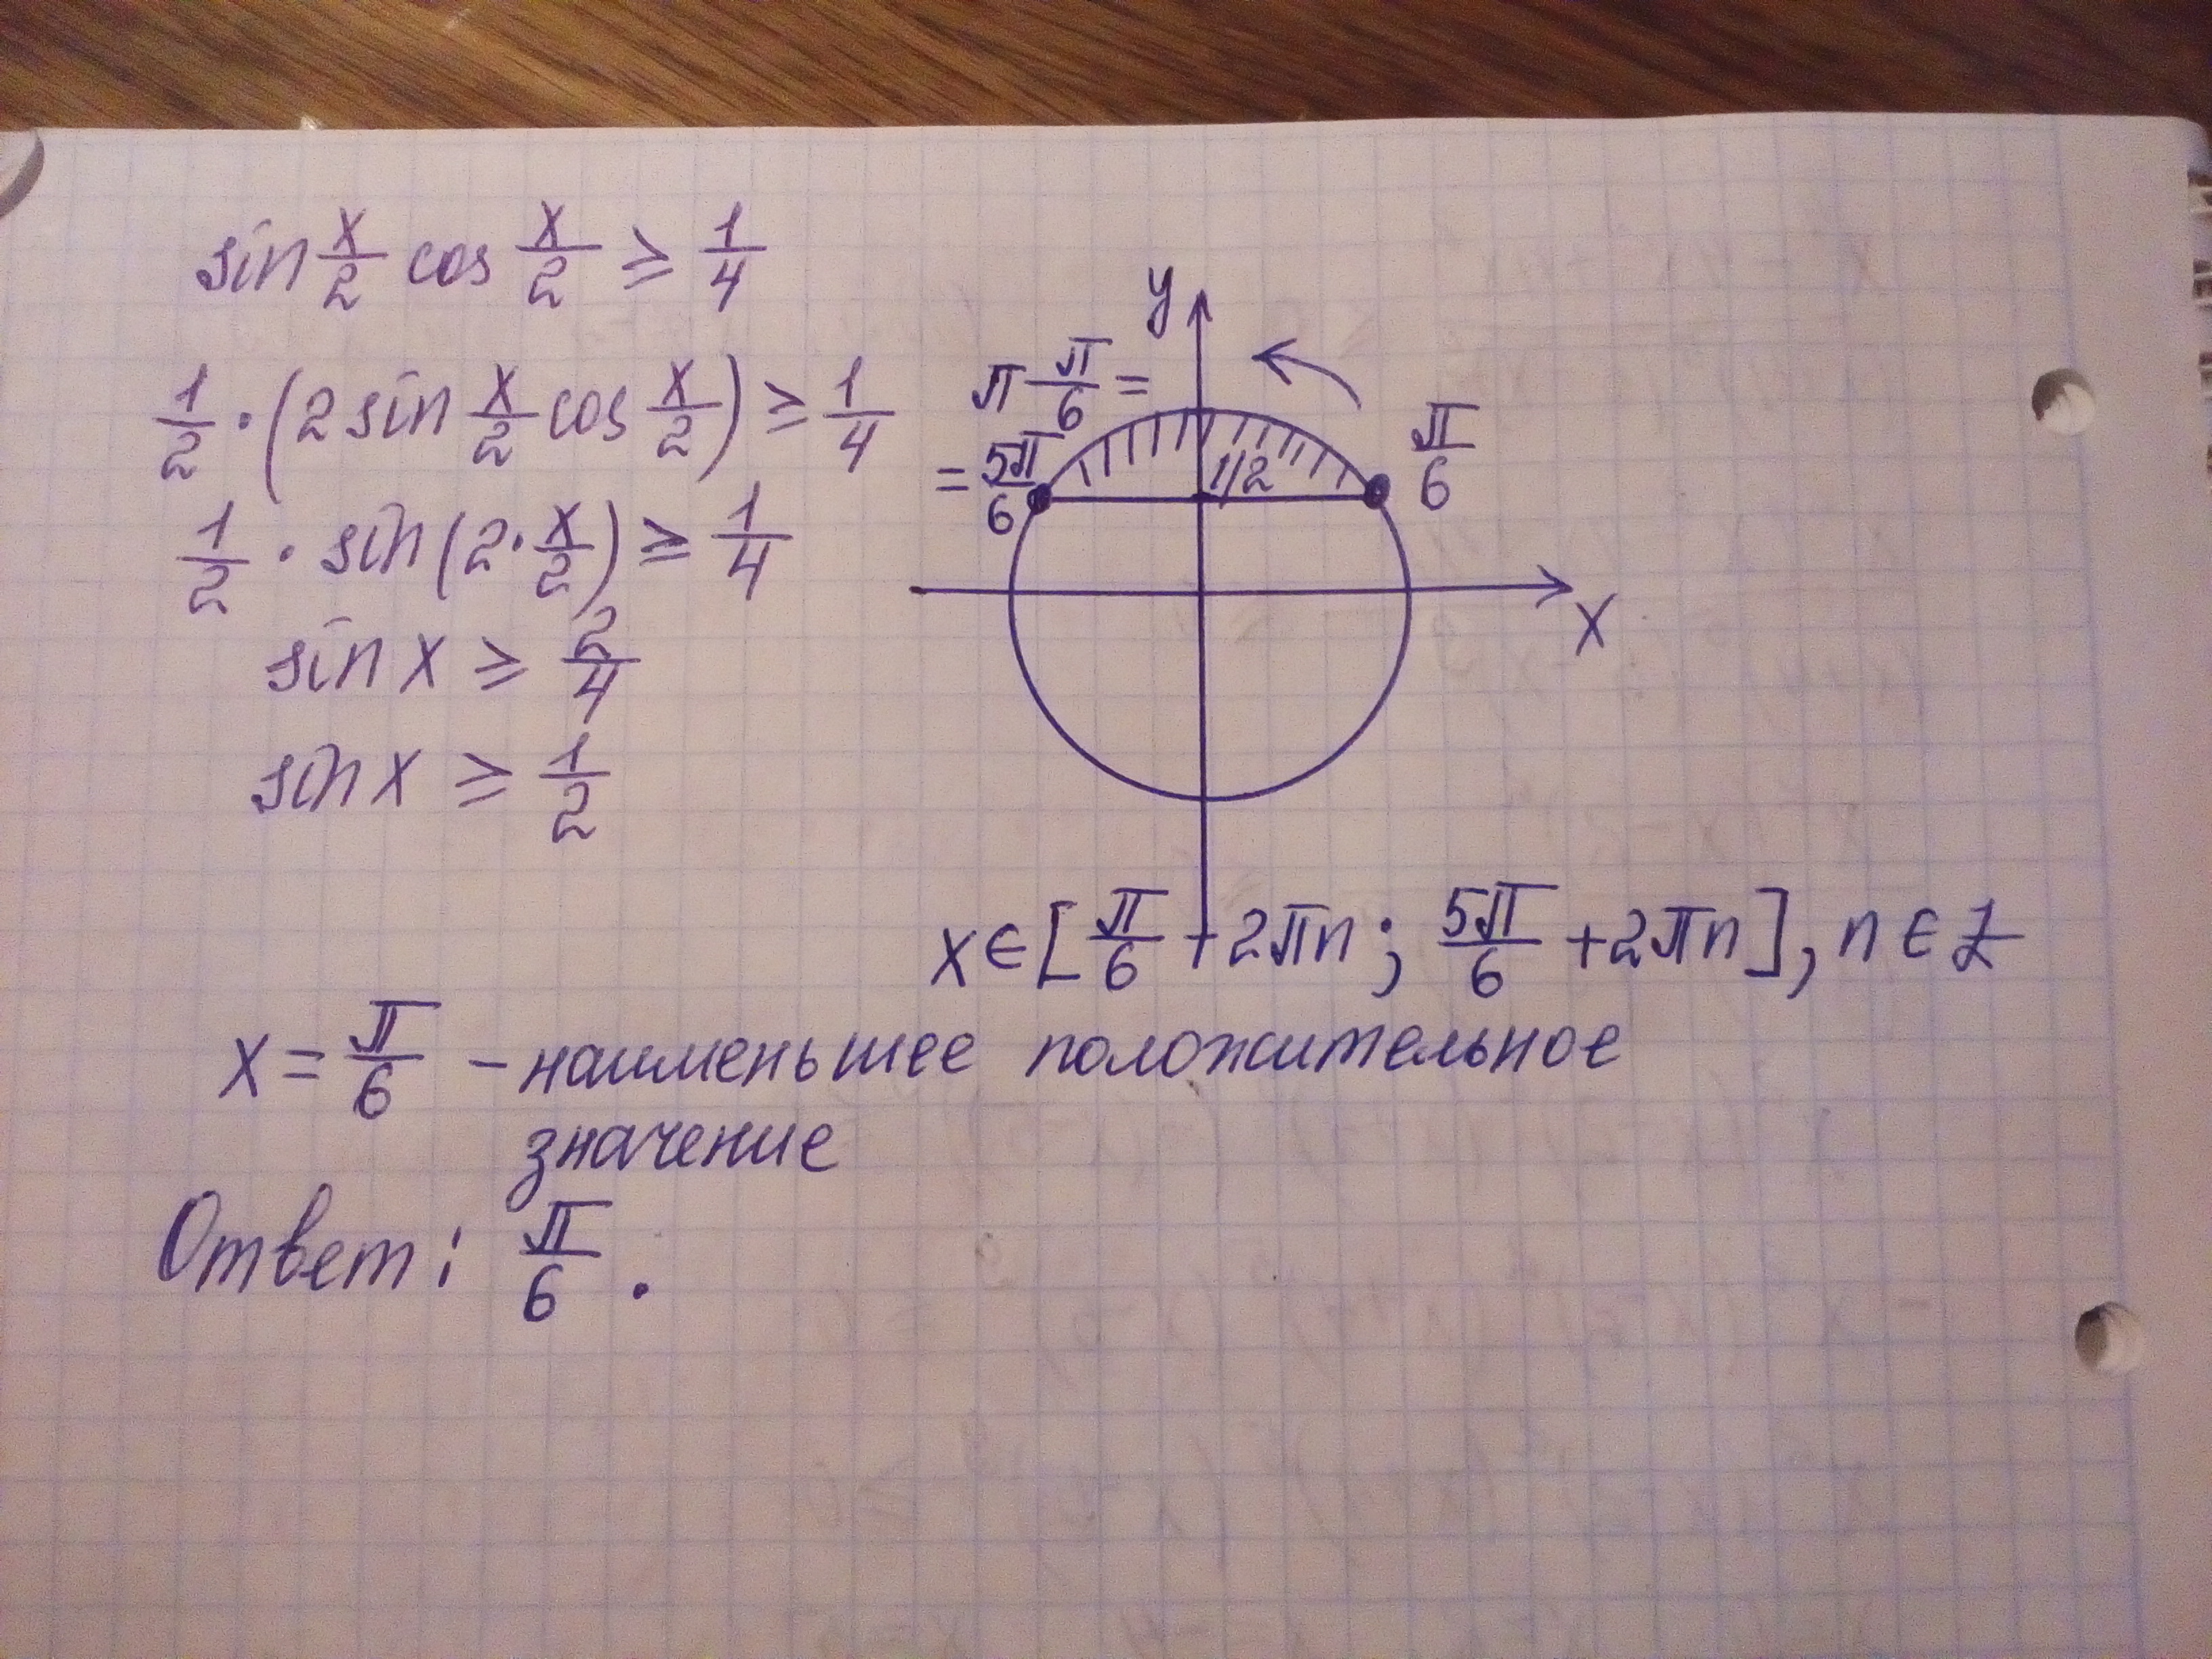 sin x/2 cos x/2 ≥ 1/4
1/2 · (2 sin x/2 cos x/2) ≥ 1/4
1/2 · sin(2 · x/2) ≥ 1/4
sin x ≥ 2/4
sin x ≥ 1/2
y
π - π/6 =
= 5π/6
1/2
π/6
x
x ∈ [π/6 + 2πn; 5π/6 + 2πn], n ∈ Z
x = π/6 – наименьшее положительное
значение
Ответ: π/6.